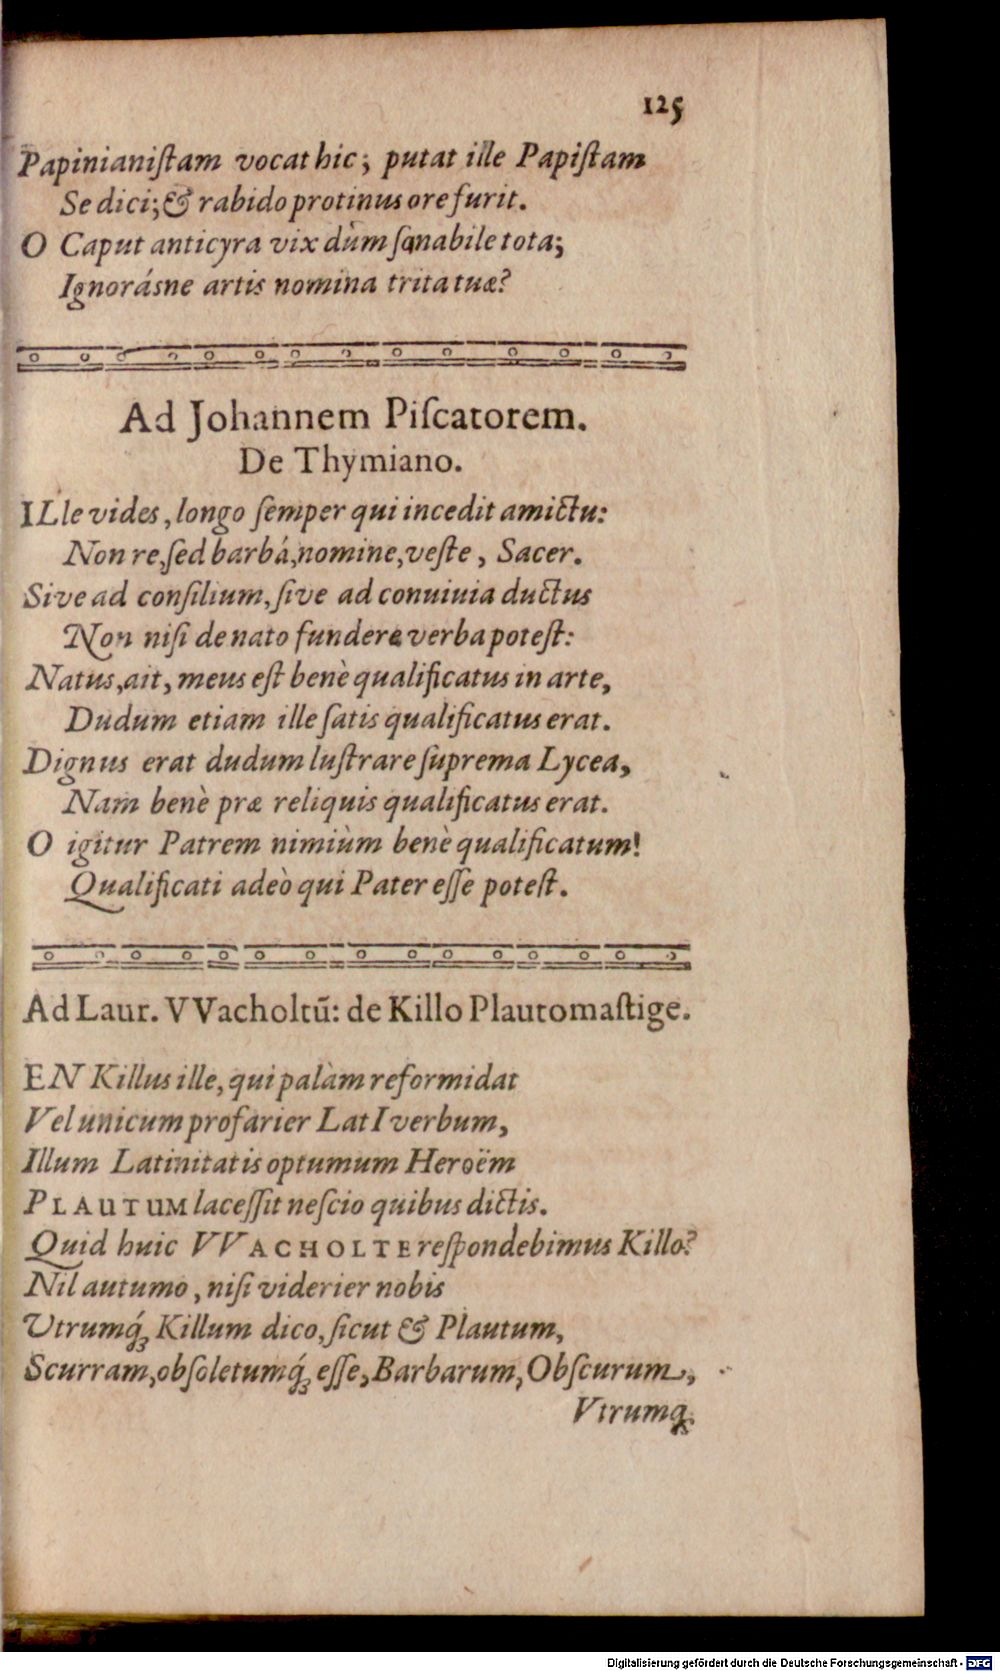 125
Papinianiſtam vocat hic; putat ille Papiſtam
Se dici; & rabido protinus ore furit.
O Caput anticyra vix dùm ſanabile tota;
Ignorásne artis nomina trita tuæ?
Ad Johannem Piſcatorem.
De Thymiano.
ILle vides, longo ſemper qui incedit amictu:
Non re, ſed barbá, nomine, veſte, Sacer.
Sive ad conſilium, ſive ad conuiuia ductus
Non niſi de nato fundere verba poteſt:
Natus, ait, meus eſt benè qualificatus in arte,
Dudum etiam ille ſatis qualificatus erat.
Dignus erat dudum luſtrare ſuprema Lycea,
Nam benè præ reliquis qualificatus erat.
O igitur Patrem nimiùm benè qualificatum!
Qualificati adeò qui Pater eſſe poteſt.
Ad Laur. VVacholtũ: de Killo Plautomaſtige.
EN Killus ille, qui palàm reformidat
Vel unicum profarier LatI verbum,
Illum Latinitatis optumum Heroëm
PLAUTUM laceſſit neſcio quibus dictis.
Quid huic VVACHOLTE reſpondebimus Killo?
Nil autumo, niſi viderier nobis
Utrumq́ꝫ Killum dico, ſicut & Plautum,
Scurram, obſoletumq́ꝫ eſſe, Barbarum, Obſcurum,
Vtrumqꝫ
Digitalisierung gefördert durch die Deutsche Forschungsgemeinschaft - DFG